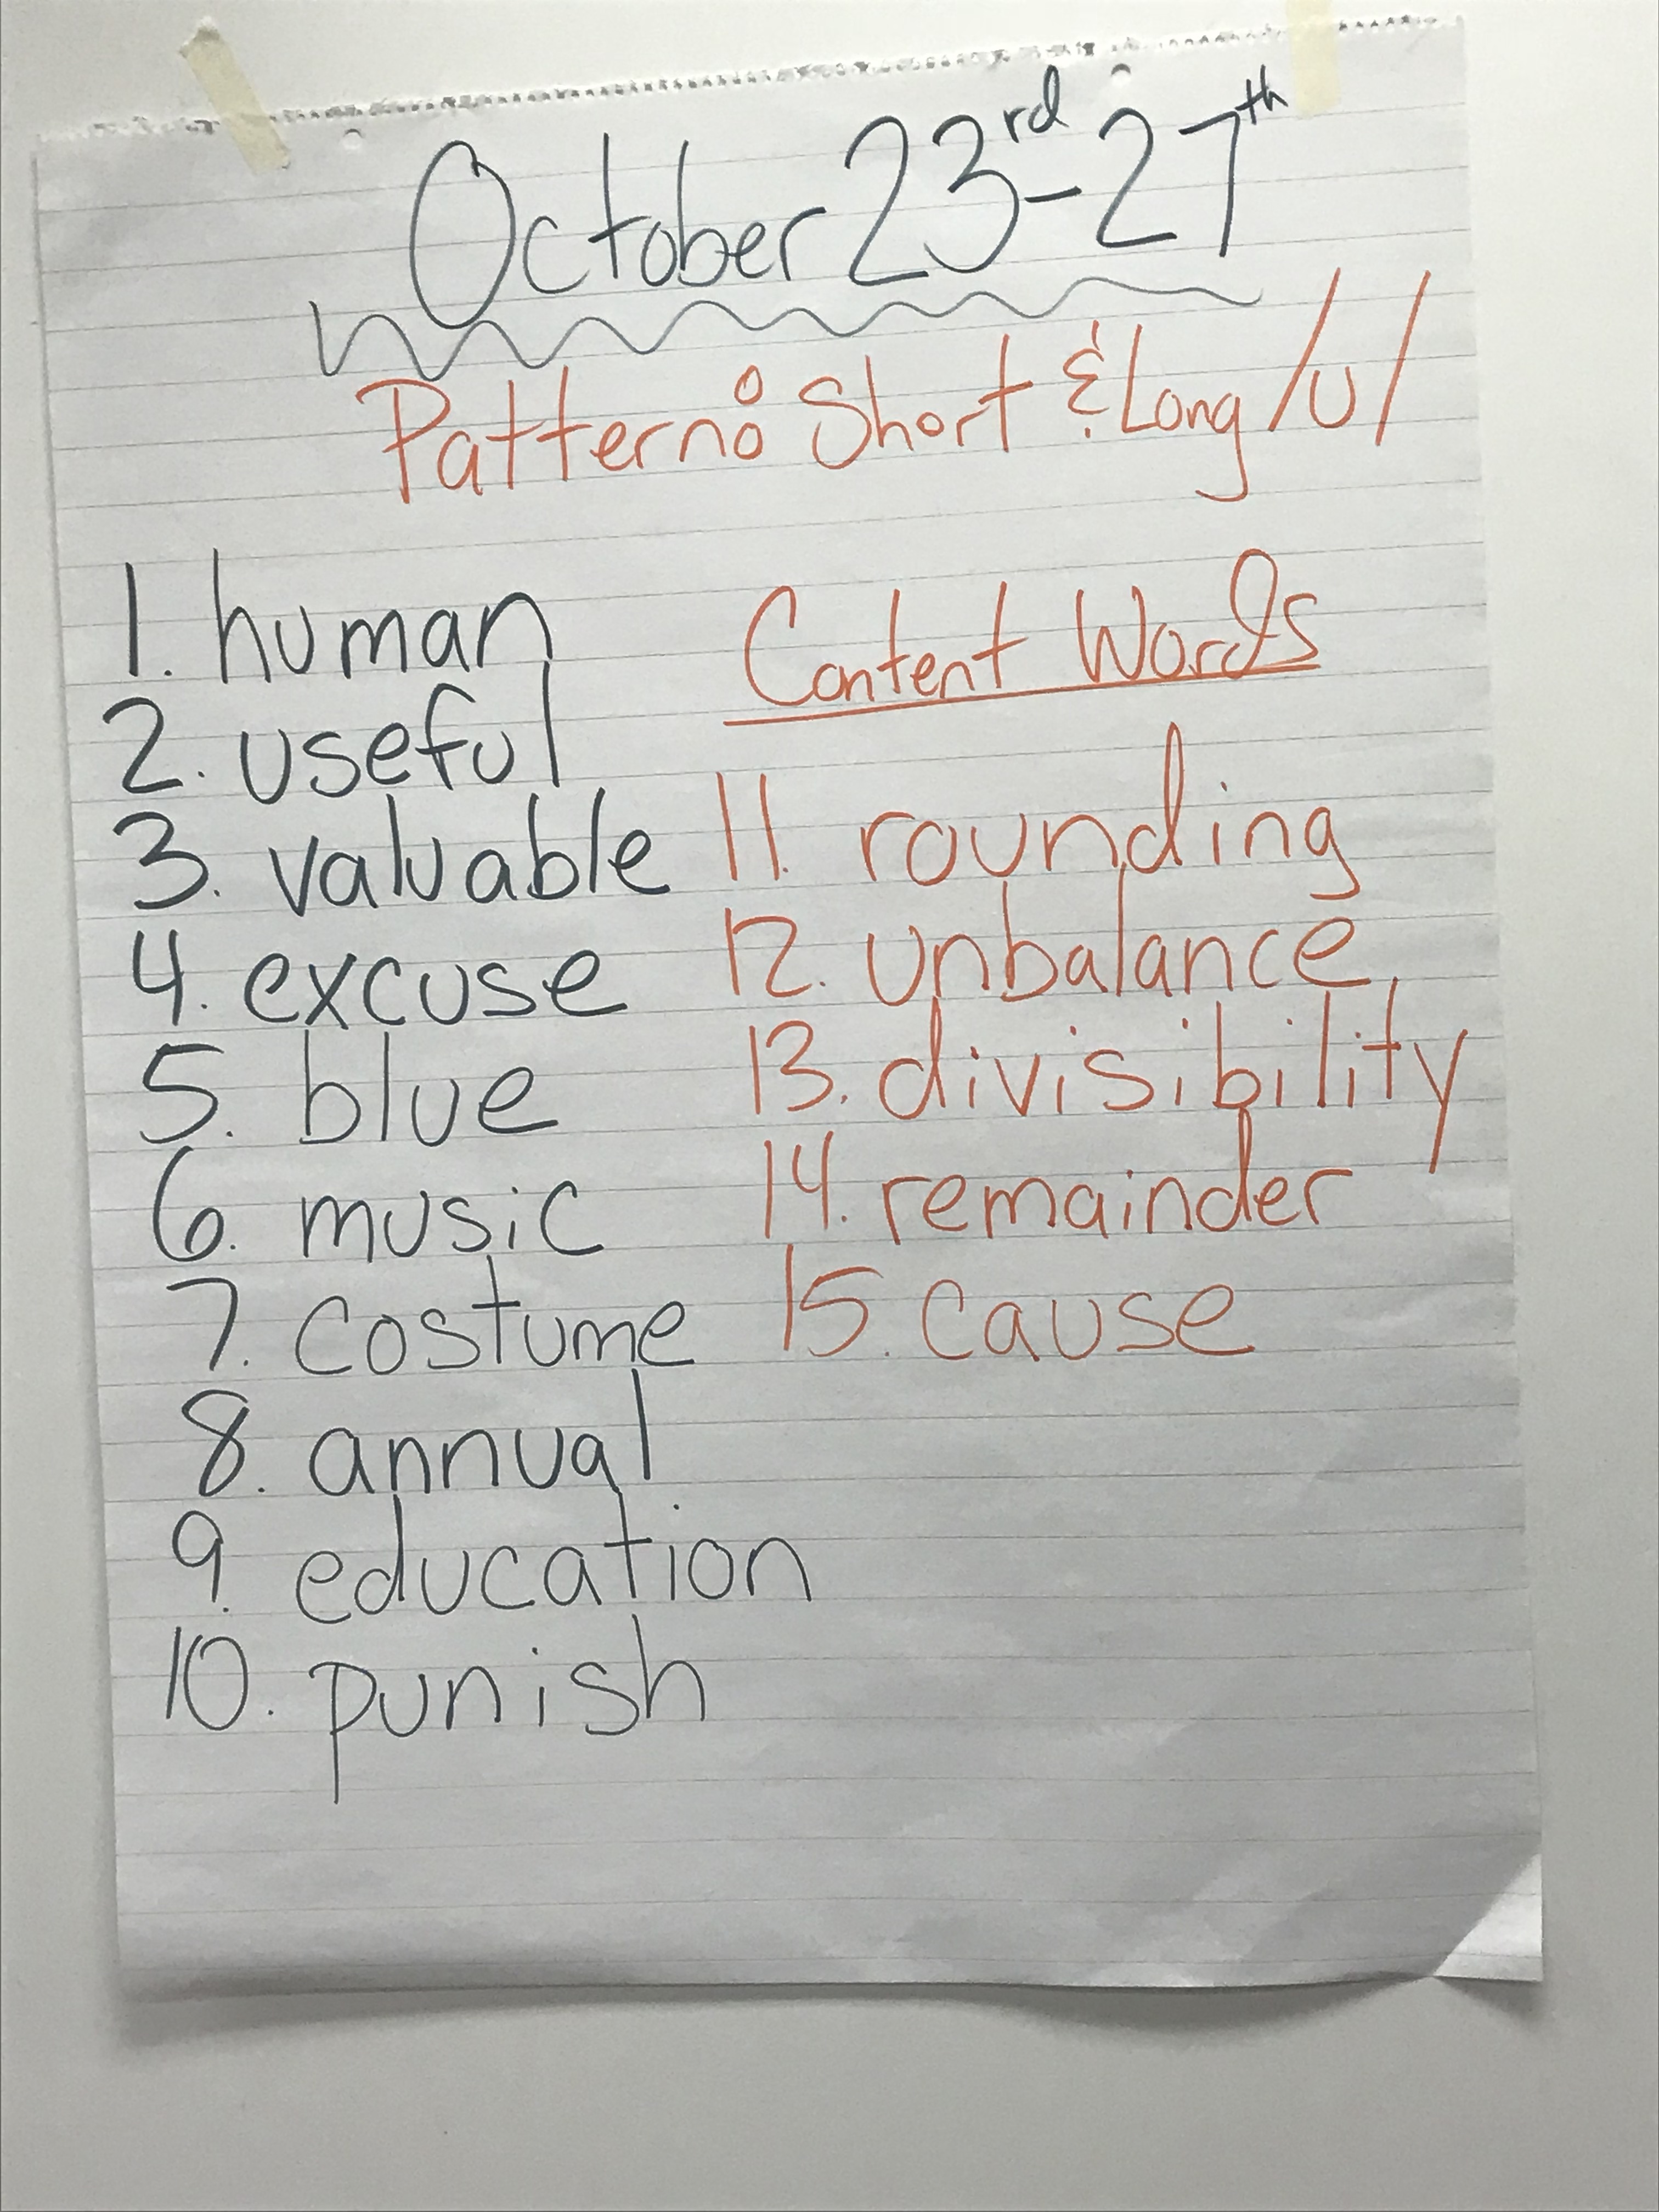 October 23rd-27th
Pattern: Short & Long /u/
1. human
2. useful
3. valuable
4. excuse
5. blue
6. music
7. costume
8. annual
9. education
10. punish
Content Words
11. rounding
12. unbalance
13. divisibility
14. remainder
15. cause